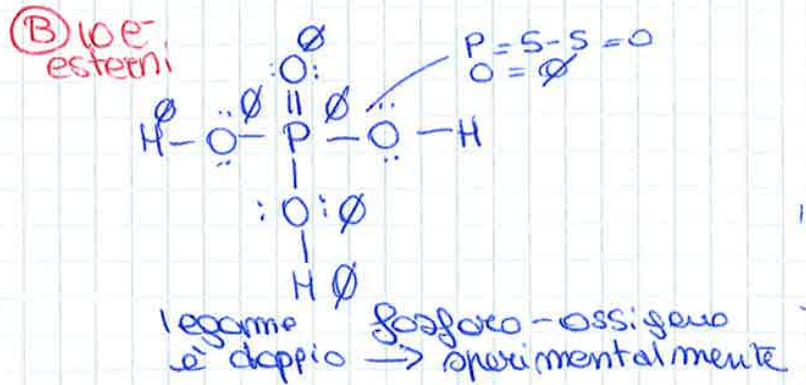 B) 10 e⁻
esterni
Ø
:O: P = 5 - 5 = 0
O = Ø
Ø Ø || Ø
H - O - P - O - H
|
:O: Ø
|
H Ø
legame fosforo - ossigeno
è doppio → sperimentalmente